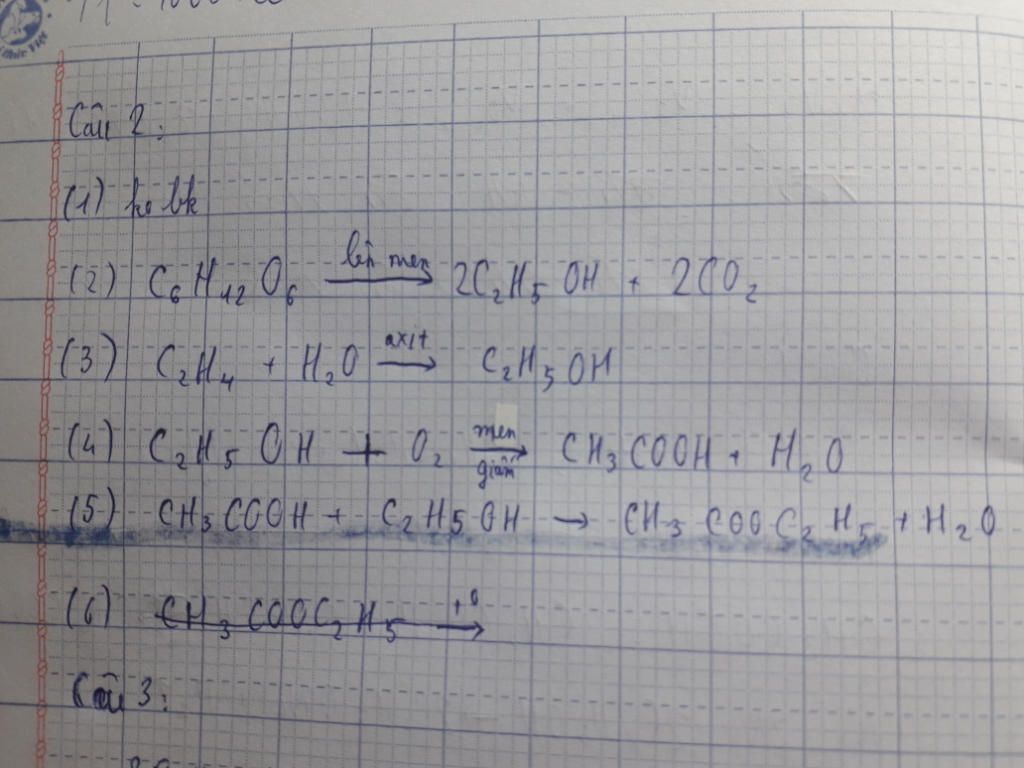 Câu 2:
(1) ko bk
(2) C₆H₁₂O₆ lên men → 2C₂H₅OH + 2CO₂
(3) C₂H₄ + H₂O axit → C₂H₅OH
(4) C₂H₅OH + O₂ men giấm → CH₃COOH + H₂O
(5) CH₃COOH + C₂H₅OH → CH₃COOC₂H₅ + H₂O
(6) CH₃COOC₂H₅ →
Câu 3: